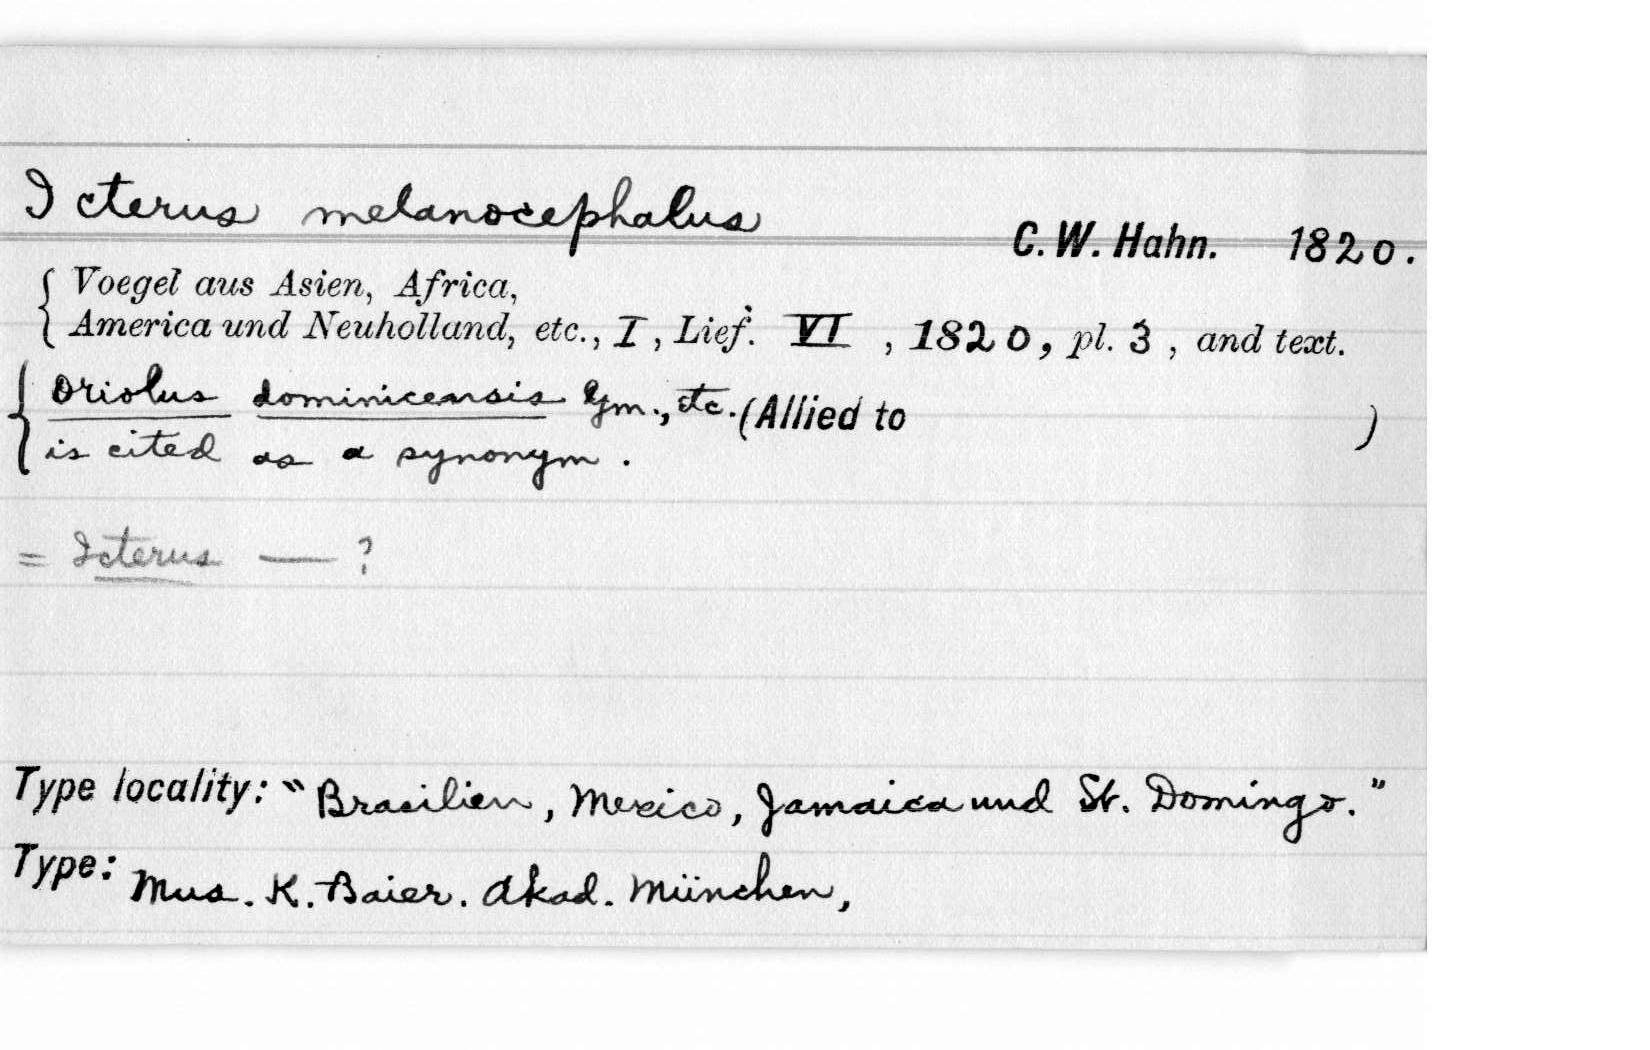 Icterus melanocephalus
C. W. Hahn. 1820.
Voegel aus Asien, Africa,
America und Neuholland, etc., I, Lief. VI, 1820, pl. 3, and text.
Oriolus dominicensis Gm., etc. (Allied to )
is cited as a synonym.
= Icterus — ?
Type locality: "Brasilien, Mexico, Jamaica und St. Domingo."
Type: Mus. K. Baier. Akad. München,